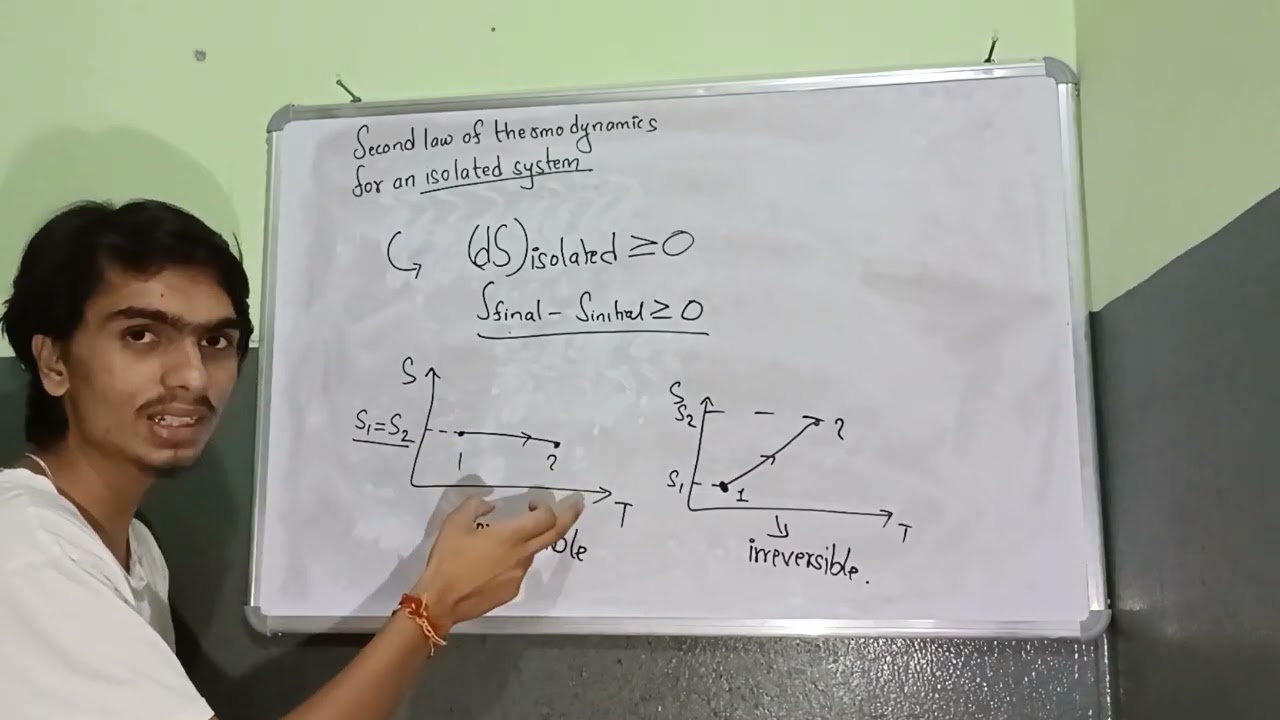 Second law of thermodynamics
for an isolated system
(dS)isolated ≥ 0
Sfinal - Sinitial ≥ 0
S
S₁=S₂
1
2
T
S
S₂
2
S₁
1
T
irreversible.